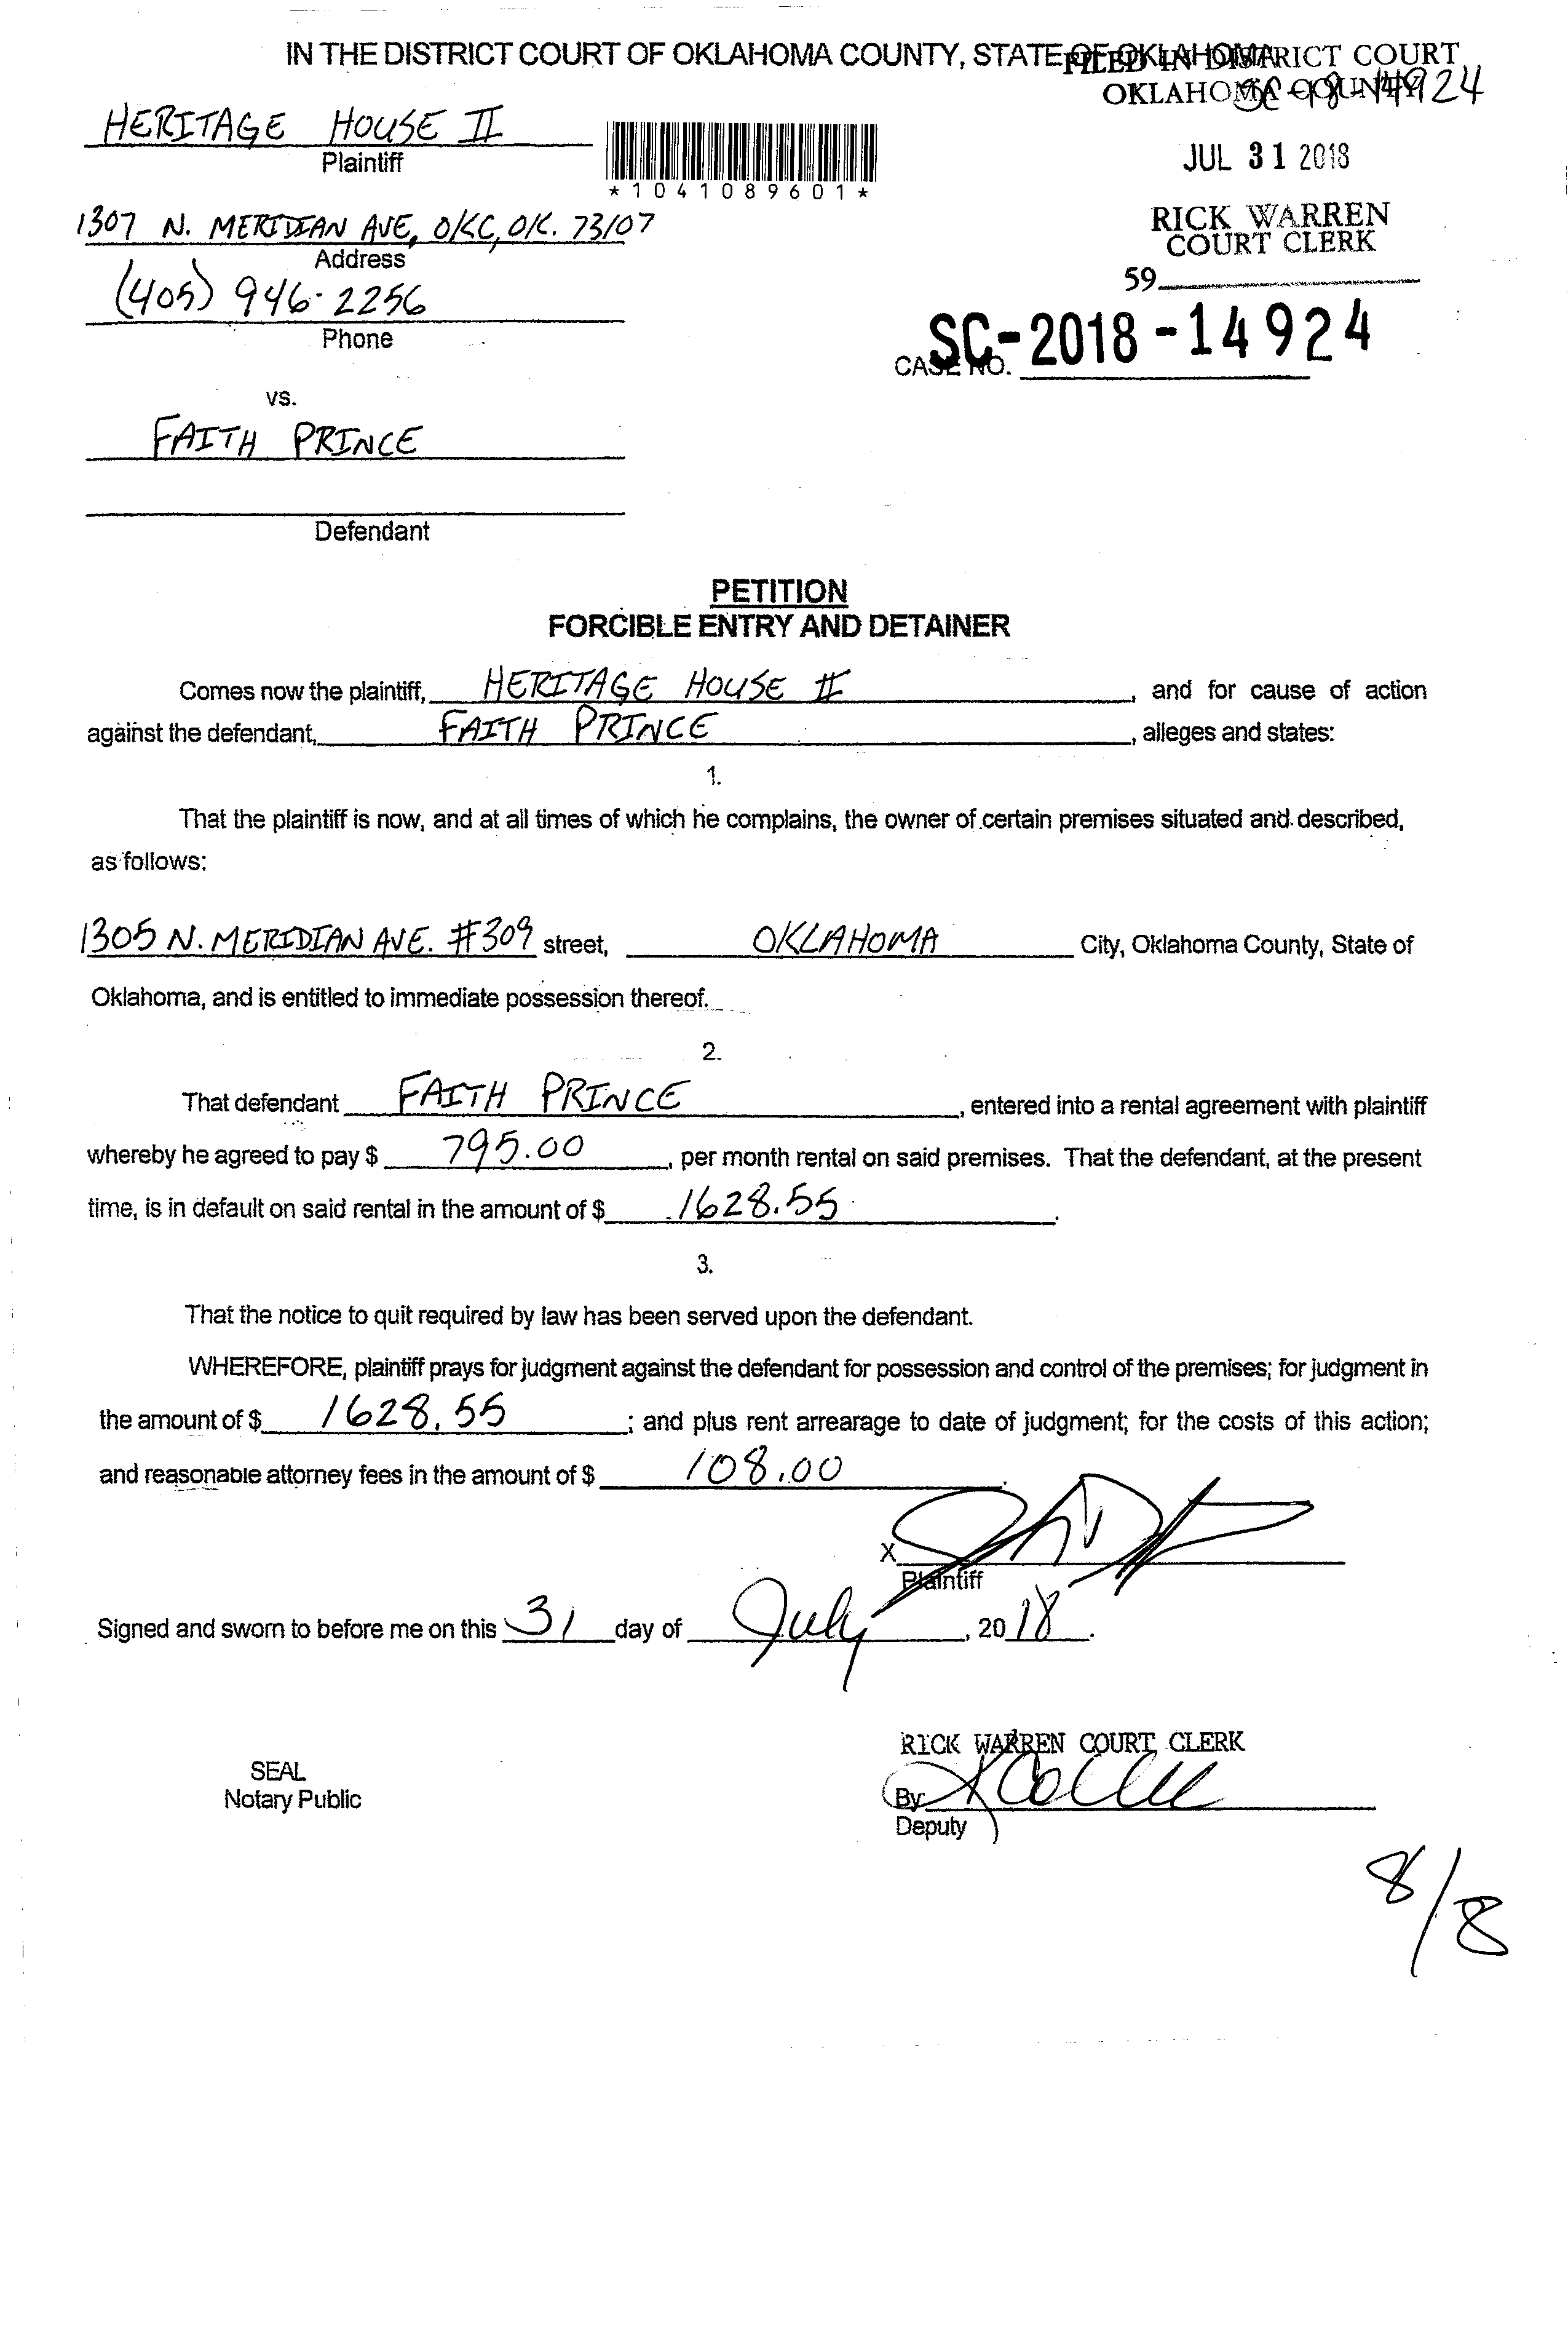 IN THE DISTRICT COURT OF OKLAHOMA COUNTY, STATE OF OKLAHOMA
FILED IN DISTRICT COURT
OKLAHOMA COUNTY
SC-18-14924
HERITAGE HOUSE II
Plaintiff
*1041089601*
JUL 31 2018
1307 N. MERIDIAN AVE, OKC, OK. 73107
Address
RICK WARREN
COURT CLERK
(405) 946-2256
59
Phone
SC-2018-14924
CASE NO.
vs.
FAITH PRINCE
Defendant
PETITION
FORCIBLE ENTRY AND DETAINER
Comes now the plaintiff, HERITAGE HOUSE II, and for cause of action
against the defendant, FAITH PRINCE, alleges and states:
1.
That the plaintiff is now, and at all times of which he complains, the owner of certain premises situated and described,
as follows:
1305 N. MERIDIAN AVE. #309 street, OKLAHOMA City, Oklahoma County, State of
Oklahoma, and is entitled to immediate possession thereof.
2.
That defendant FAITH PRINCE, entered into a rental agreement with plaintiff
whereby he agreed to pay $ 795.00, per month rental on said premises. That the defendant, at the present
time, is in default on said rental in the amount of $ 1628.55.
3.
That the notice to quit required by law has been served upon the defendant.
WHEREFORE, plaintiff prays for judgment against the defendant for possession and control of the premises; for judgment in
the amount of $ 1628.55; and plus rent arrearage to date of judgment; for the costs of this action;
and reasonable attorney fees in the amount of $ 108.00.
X
Plaintiff
Signed and sworn to before me on this 31 day of July, 2018.
RICK WARREN COURT CLERK
SEAL
Notary Public
By:
Deputy
8/8